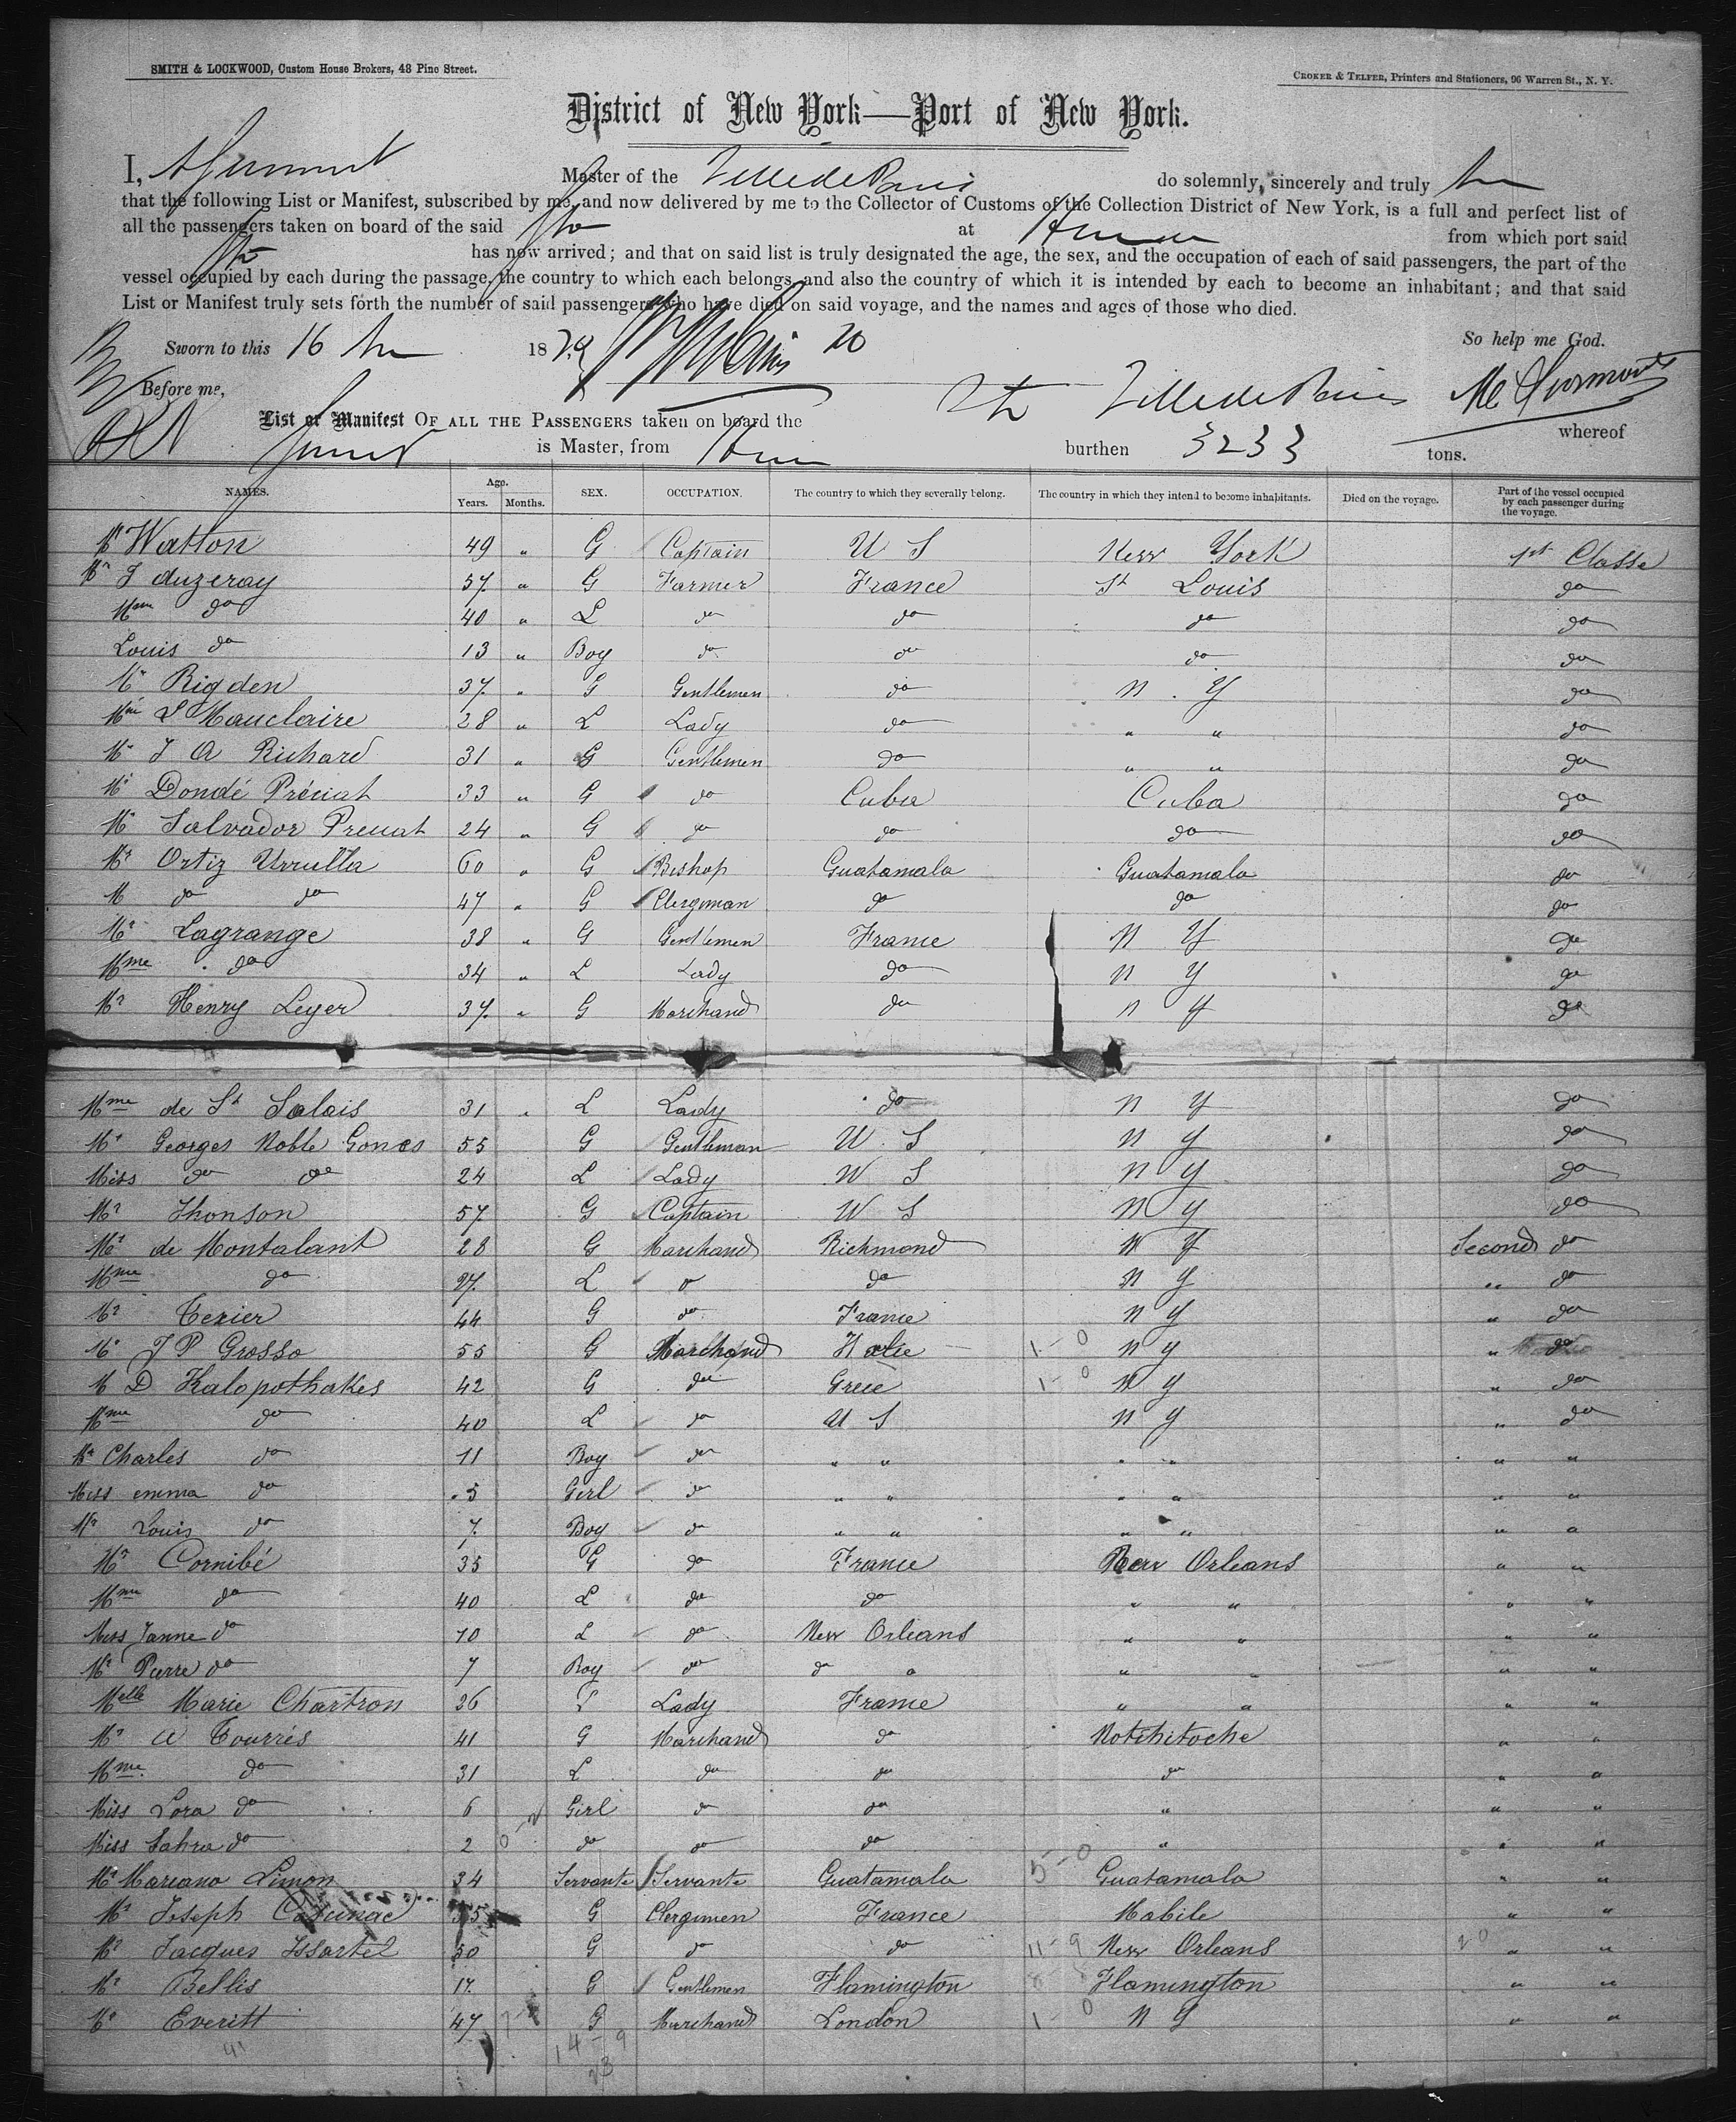 SMITH & LOCKWOOD, Custom House Brokers, 43 Pine Street.
CROKER & TELFER, Printers and Stationers, 96 Warren St., N. Y.
District of New York—Port of New York.
I, Master of the Ville de Paris do solemnly, sincerely and truly
that the following List or Manifest, subscribed by me, and now delivered by me to the Collector of Customs of the Collection District of New York, is a full and perfect list of
all the passengers taken on board of the said at Havre from which port said
has now arrived; and that on said list is truly designated the age, the sex, and the occupation of each of said passengers, the part of the
vessel occupied by each during the passage, the country to which each belongs, and also the country of which it is intended by each to become an inhabitant; and that said
List or Manifest truly sets forth the number of said passengers who have died on said voyage, and the names and ages of those who died.
Sworn to this 16 1879 So help me God.
Before me,
List or Manifest OF ALL THE PASSENGERS taken on board the Ville de Paris whereof
is Master, from Havre burthen 3233 tons.
NAMES. Age. Years. Months. SEX. OCCUPATION. The country to which they severally belong. The country in which they intend to become inhabitants. Died on the voyage. Part of the vessel occupied by each passenger during the voyage.
Mr Watton 49 " G Captain U S New York 1st Classe
Mr J duzeray 57 " G Farmer France St Louis do
Mme do 40 " L do do do do
Louis do 13 " Boy do do do do
Mr Rigden 37 " G Gentlemen do N. Y do
Mme L Mauclaire 28 " L Lady do " " do
Mr J A Richard 31 " G Gentlemen do " " do
Mr Dondé Préciat 33 " G do Cuba Cuba do
Mr Salvador Preciat 24 " G do do do do
Mr Ortiz Urrutta 60 " G Bishop Guatamala Guatamala do
M do do 47 " G Clergman do do do
Mr Lagrange 38 " G Gentlemen France N Y do
Mme do 34 " L Lady do N Y do
Mr Henry Leyer 37 " G Marchand do N Y do
Mme de St Salais 31 " L Lady do N Y do
Mr Georges Noble Gones 55 G Gentleman U. S N Y do
Miss do do 24 L Lady U S N Y do
Mr Thonson 57 G Captain U S N Y do
Mr de Montalant 28 G Marchand Richmond N Y Second do
Mme do 27 L do do N Y " do
Mr Texier 44 G do France N Y " do
Mr J P Grosso 55 G Marchand Italie 1-0 N Y " do
M D Kalopothakes 42 G do Grece 1-0 N Y " do
Mme do 40 L do U S N Y " do
Mr Charles do 11 Boy do " " " " " "
Miss emma do 5 Girl do " " " " " "
Mr Louis do 7 Boy do " " " " " "
Mr Cornibé 35 G do France New Orleans " "
Mme do 40 L do do " " " "
Miss Janne do 10 L do New Orleans " " " "
Mr Pierre do 7 Boy do do " " " "
Melle Marie Chartron 26 L Lady France " " " "
Mr A Tourrés 41 G Marchand do Notchitoche " "
Mme do 31 L do do do " "
Miss Lora do 6 Girl do do " " "
Miss Sahra do 2 do do do " " "
Mr Mariano Limon 34 Servante Servante Guatamala 5-0 Guatamala " "
Mr Joseph 35 G Clergimen France Mobile " "
Mr Jacques Issartel 50 G do do 11-9 New Orleans 20 " "
Mr Bellis 17 G Gentlemen Flamington Flamington " "
Mr Everitt 47 G Marchand London 1-0 N Y " "
41 14-9
23